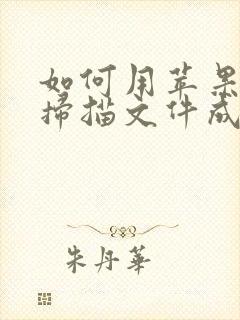 如何用苹果
扫描文件成
朱丹华